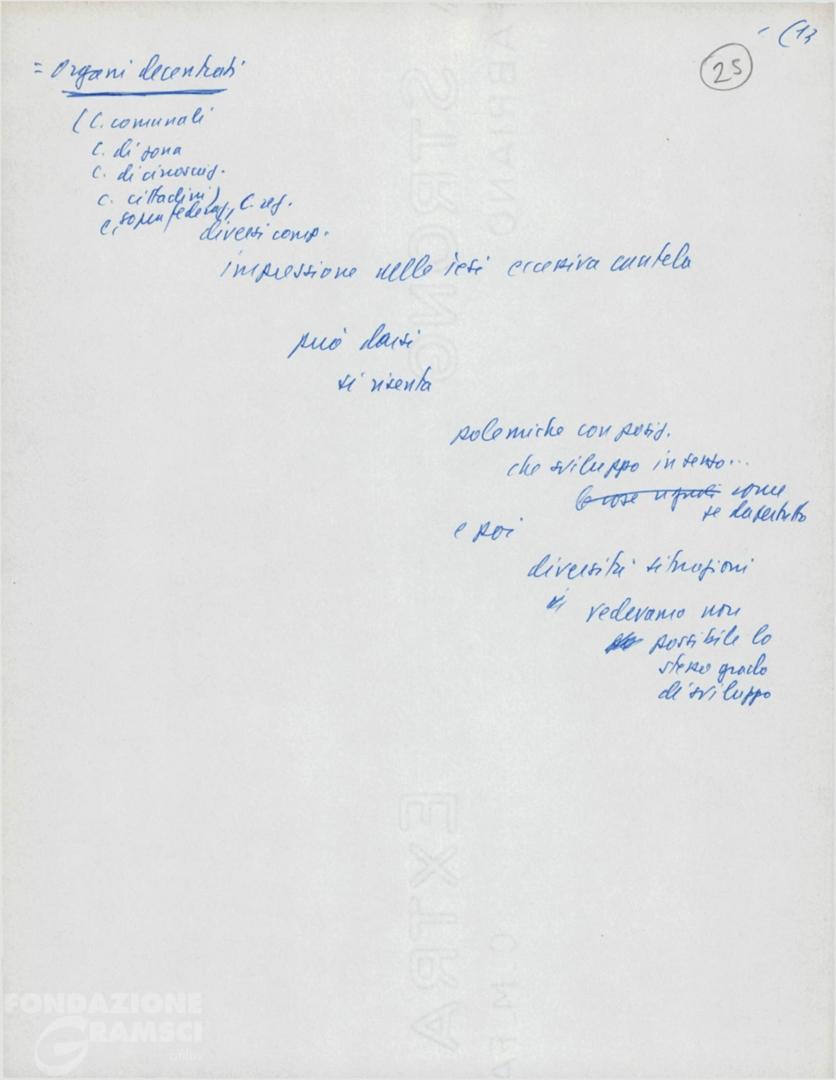 (13
25
= Organi decentrati
(C. comunali
C. di zona
C. di circoscriz.
C. cittadini)
C. sopra federaz., C. reg.
diversi comp.
impressione nelle Tesi eccessiva cautela
può darsi
si risenta
polemiche con posiz.
che sviluppo in senso...
come
se dapertutto
e poi
diversità situazioni
vedevamo non
possibile lo
stesso grado
di sviluppo
FABRIANO
STRONG
EXTRA
FONDAZIONE
GRAMSCI
onlus